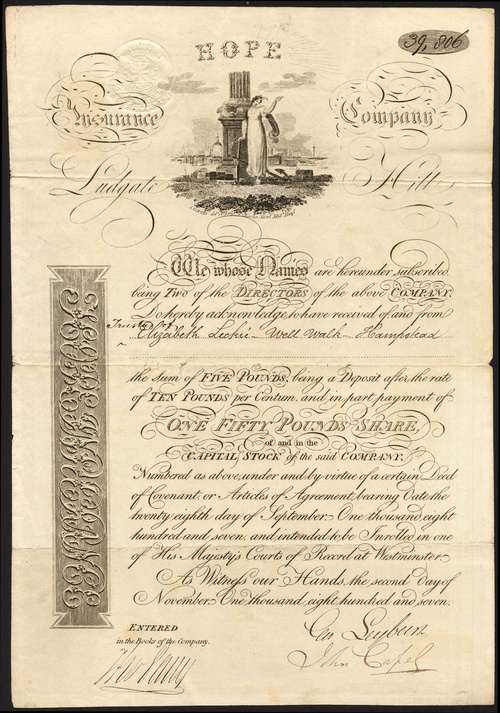 HOPE
39,806
Insurance Company
Ludgate Hill
We whose Names are hereunder subscribed
being Two of the DIRECTORS of the above COMPANY,
Do hereby acknowledge to have received of and from
Elizabeth Leckie Well Walk Hampstead
the sum of FIVE POUNDS, being a Deposit after the rate
of TEN POUNDS per Centum, and in part payment of
ONE FIFTY POUNDS SHARE,
of and in the
CAPITAL STOCK of the said COMPANY,
Numbered as above, under and by virtue of a certain Deed
of Covenant, or Articles of Agreement, bearing Date the
twenty eighth day of September, One thousand eight
hundred and seven, and intended to be Inrolled in one
of His Majesty's Courts of Record at Westminster.
As Witness our Hands, the second Day of
November, One thousand, eight hundred and seven.
ENTERED
in the Books of the Company,
John Capel